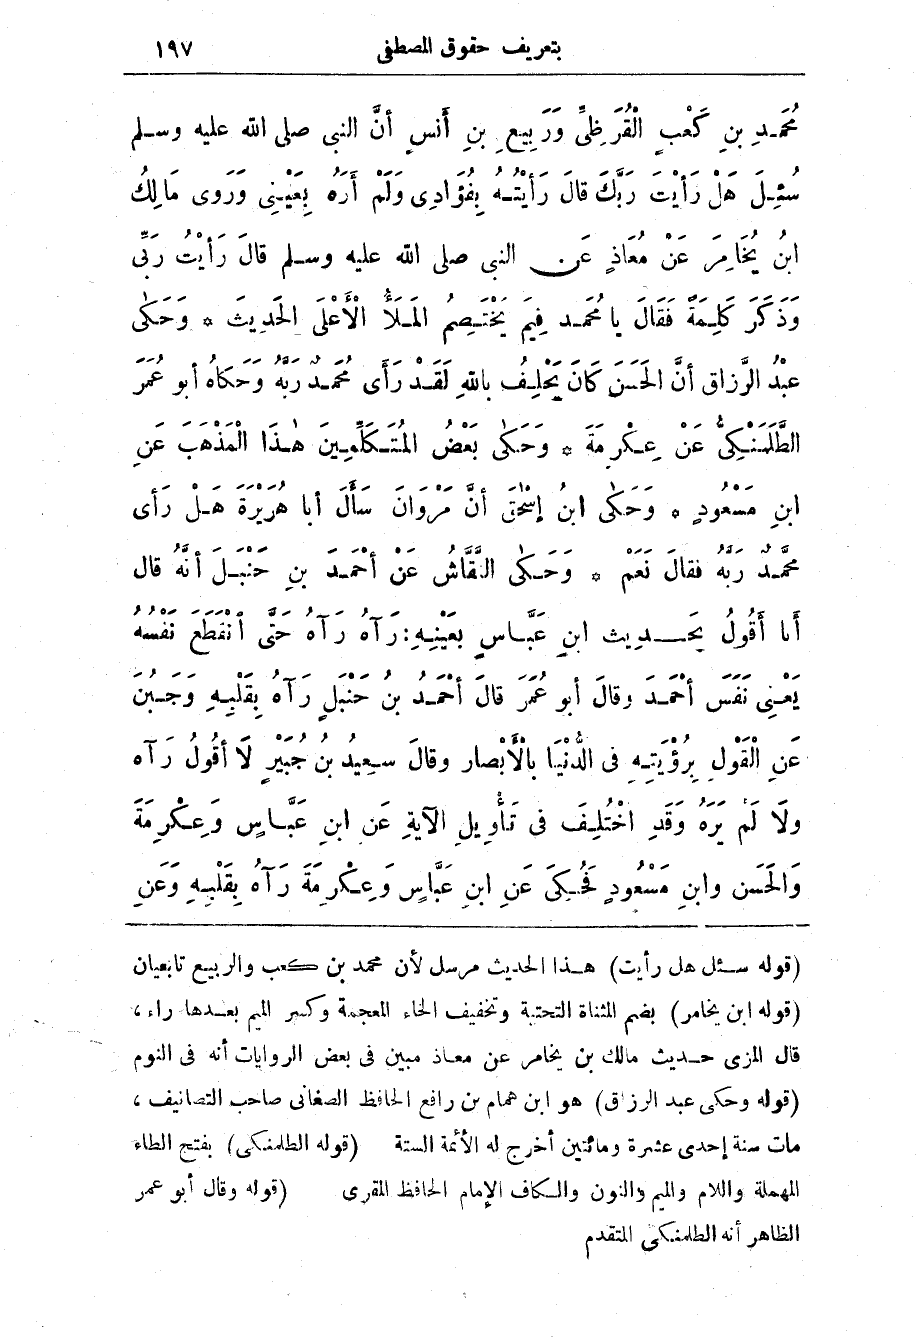 بتعريف حقوق المصطفى ١٩٧
مُحَمَّدِ بنِ كَعْبٍ الْقُرَظِيِّ وَرَبِيعِ بنِ أَنَسٍ أَنَّ النبى صلى الله عليه وسلم
سُئِلَ هَلْ رَأَيْتَ رَبَّكَ قَالَ رَأَيْتُهُ بِفُؤَادِى وَلَمْ أَرَهُ بِعَيْنِى وَرَوَى مَالِكُ
ابنُ يُخَامِرَ عَنْ مُعَاذٍ عَنِ النبى صلى الله عليه وسلم قَالَ رَأَيْتُ رَبِّى
وَذَكَرَ كَلِمَةً فَقَالَ يا مُحَمَّد فِيمَ يَخْتَصِمُ المَلَأُ الْأَعْلَى الحَدِيثَ * وَحَكَى
عبْدُ الرَّزاق أنَّ الحَسَنَ كَانَ يَحْلِفُ باللهِ لَقَدْ رَأَى مُحَمَّدٌ رَبَّهُ وَحَكاهُ أبو عُمَرَ
الطَّلَمَنْكِىُّ عَنْ عِكْرِمَةَ * وَحَكَى بَعْضُ المُتَكَلِّمِينَ هٰذَا الْمَذْهَبَ عَنِ
ابنِ مَسْعُودٍ * وَحَكَى ابنُ إِسْحٰقَ أَنَّ مَرْوَانَ سَأَلَ أبا هُرَيْرَةَ هَلْ رَأى
مُحَمَّدٌ رَبَّهُ فقالَ نَعَمْ * وَحَكَى النَّقَّاشُ عَنْ أَحْمَدَ بنِ حَنْبَلَ أَنَّهُ قال
أَنا أَقُولُ بِحَدِيث ابنِ عَبَّاسٍ بِعَيْنِهِ: رَآهُ رَآهُ حَتَّى انْقَطَعَ نَفَسُهُ
يَعْنِى نَفَسَ أَحْمَدَ وقالَ أبو عُمَرَ قالَ أَحْمَدُ بنُ حَنْبَلٍ رَآهُ بِقَلْبِهِ وَجَبُنَ
عَنِ الْقَوْلِ بِرُؤْيَتِهِ فى الدُّنْيَا بِالْأَبْصَارِ وقالَ سعِيدُ بنُ جُبَيْرٍ لَا أَقُولُ رَآه
ولَا لَمْ يَرَهُ وَقَدِ اخْتُلِفَ فى تَأْوِيلِ الآيَةِ عَنِ ابنِ عَبَّاسٍ وَعِكْرِمَةَ
وَالحَسَنِ وابنِ مَسْعُودٍ فَحُكِىَ عَنِ ابنِ عَبَّاسٍ وَعِكْرِمَةَ رَآهُ بِقَلْبِهِ وَعَنِ
(قوله سئل هل رأيت) هذا الحديث مرسل لأن محمد بن كعب والربيع تابعيان
(قوله ابن يخامر) بضم المثناة التحتية وتخفيف الخاء المعجمة وكسر الميم بعدها راء ،
قال المزى حديث مالك بن يخامر عن معاذ مبين فى بعض الروايات أنه فى النوم
(قوله وحكى عبد الرزاق) هو ابن همام بن رافع الحافظ الصغانى صاحب التصانيف ،
مات سنة إحدى عشرة ومائتين أخرج له الأئمة الستة (قوله الطلمنكى) بفتح الطاء
المهملة واللام والميم والنون والكاف الإمام الحافظ المقرى (قوله وقال أبو عمر
الظاهر أنه الطلمنكى المتقدم